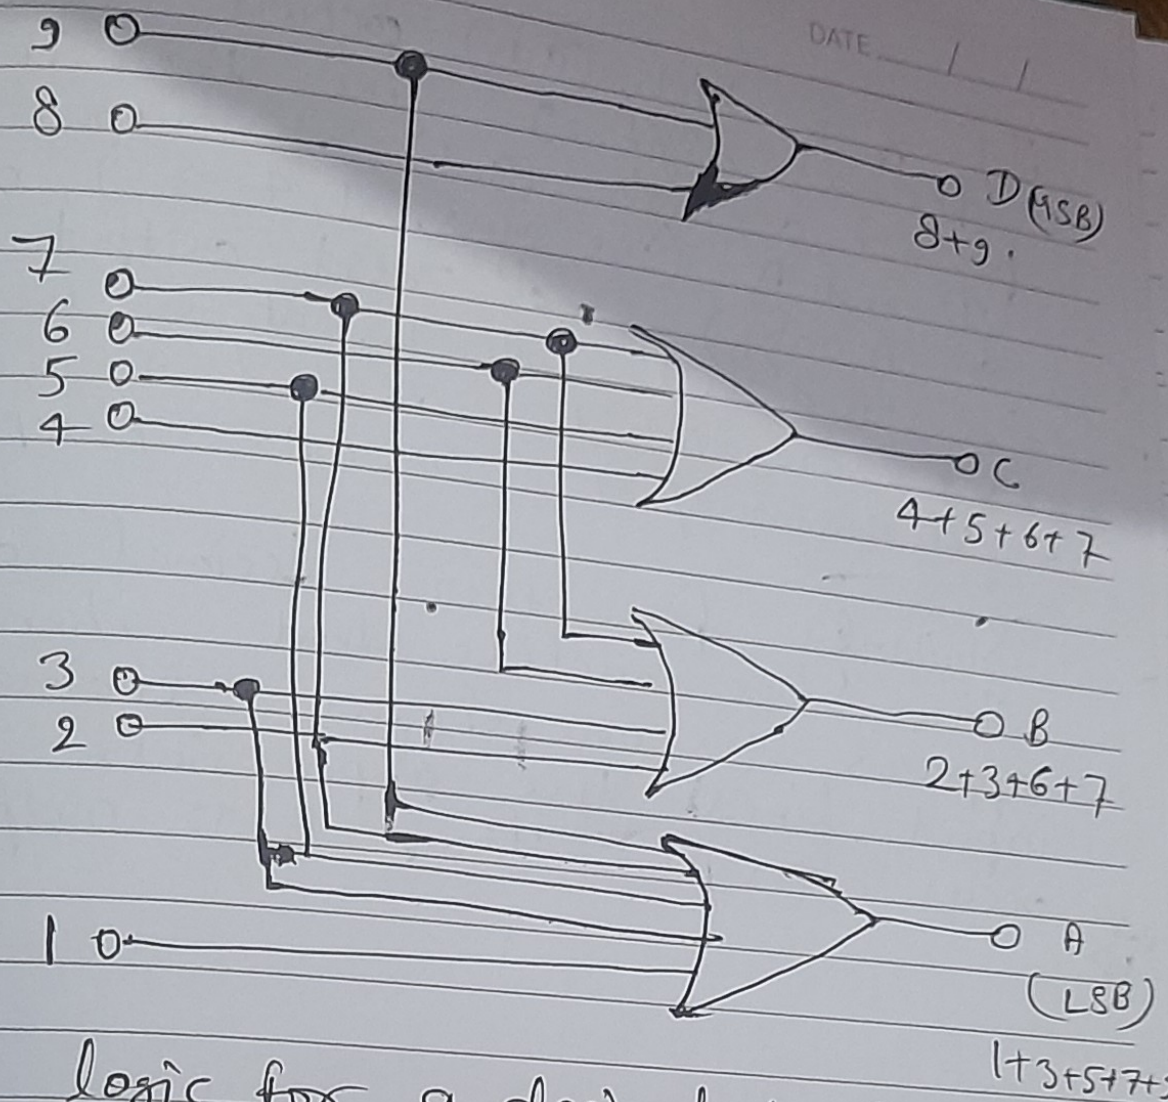 DATE
9
8
D (MSB)
8+9.
7
6
5
4
C
4+5+6+7
3
2
B
2+3+6+7
1
A
(LSB)
1+3+5+7+
logic for a